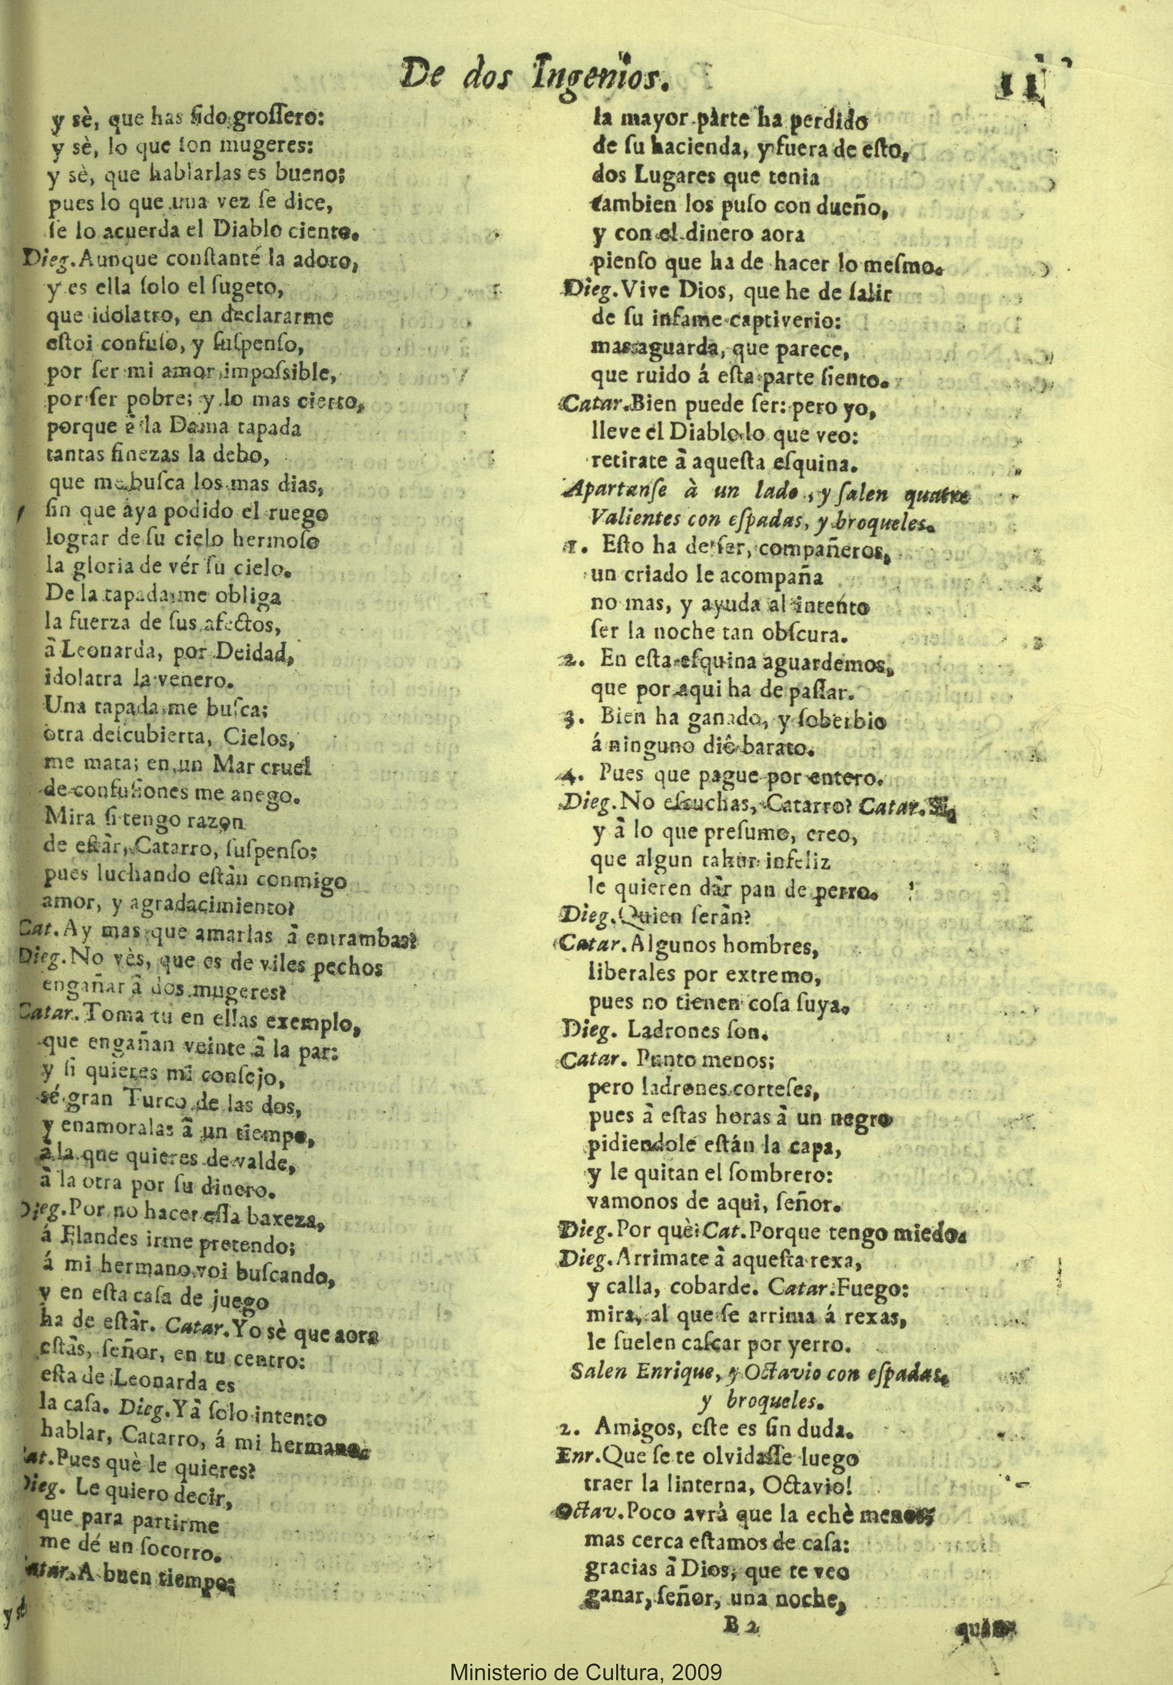 De dos Ingenios.
11
y sè, que has ſido groſſero:
y sè, lo que ſon mugeres:
y sè, que hablarlas es bueno;
pues lo que una vez ſe dice,
ſe lo acuerda el Diablo ciento.
Dieg. Aunque conſtanté la adoro,
y es ella ſolo el ſugeto,
que idolatro, en declararme
eſtoi confuſo, y ſuſpenſo,
por ſer mi amor impoſsible,
por ſer pobre; y lo mas cierto,
porque à la Dama tapada
tantas finezas la debo,
que me buſca los mas dias,
ſin que aya podido el ruego
lograr de ſu cielo hermoſo
la gloria de vér ſu cielo.
De la tapada me obliga
la fuerza de ſus afectos,
â Leonarda, por Deidad,
idolatra la venero.
Una tapada me buſca;
otra deſcubierta, Cielos,
me mata; en un Mar cruel
de confuſiones me anego.
Mira ſi tengo razon
de eſtàr, Catarro, ſuſpenſo;
pues luchando eſtàn conmigo
amor, y agradacimiento?
Cat. Ay mas que amarlas â entrambas?
Dieg. No vès, que es de viles pechos
engañar â dos mugeres?
Catar. Toma tu en ellas exemplo,
que engañan veinte â la par:
y ſi quieres mi conſejo,
sé gran Turco de las dos,
y enamoralas â un tiempo,
â la que quieres de valde,
â la otra por ſu dinero.
Dieg. Por no hacer eſſa baxeza,
á Flandes irme pretendo;
á mi hermano voi buſcando,
y en eſta caſa de juego
ha de eſtàr. Catar. Yo sè que aora
eſtàs, ſeñor, en tu centro:
eſta de Leonarda es
la caſa. Dieg. Yâ ſolo intento
hablar, Catarro, á mi hermano.
Cat. Pues què le quieres?
Dieg. Le quiero decir,
que para partirme
me dé un ſocorro.
Catar. A buen tiempo;
la mayor parte ha perdido
de ſu hacienda, y fuera de eſto,
dos Lugares que tenia
tambien los puſo con dueño,
y con el dinero aora
pienſo que ha de hacer lo meſmo.
Dieg. Vive Dios, que he de ſalir
de ſu infame captiverio:
mas aguarda, que parece,
que ruido á eſta parte ſiento.
Catar. Bien puede ſer: pero yo,
lleve el Diablo lo que veo:
retirate â aqueſta eſquina.
Apartanſe à un lado, y ſalen quatro
Valientes con eſpadas, y broqueles.
1. Eſto ha de ſer, compañeros,
un criado le acompaña
no mas, y ayuda al intento
ſer la noche tan obſcura.
2. En eſta eſquina aguardemos,
que por aqui ha de paſſar.
3. Bien ha ganado, y ſoberbio
á ninguno diê barato.
4. Pues que pague por entero.
Dieg. No eſcuchas, Catarro? Catar.
y â lo que preſumo, creo,
que algun tahur infeliz
le quieren dàr pan de perro.
Dieg. Quien ſeràn?
Catar. Algunos hombres,
liberales por extremo,
pues no tienen coſa ſuya.
Dieg. Ladrones ſon.
Catar. Punto menos;
pero ladrones corteſes,
pues â eſtas horas â un negro
pidiendole eſtán la capa,
y le quitan el ſombrero:
vamonos de aqui, ſeñor.
Dieg. Por què? Cat. Porque tengo miedo.
Dieg. Arrimate â aqueſta rexa,
y calla, cobarde. Catar. Fuego:
mira, al que ſe arrima á rexas,
le ſuelen caſcar por yerro.
Salen Enrique, y Octavio con eſpadas,
y broqueles.
2. Amigos, eſte es ſin duda.
Enr. Que ſe te olvidaſſe luego
traer la linterna, Octavio!
Octav. Poco avrà que la echè menos;
mas cerca eſtamos de caſa:
gracias â Dios, que te veo
ganar, ſeñor, una noche,
B 2
Ministerio de Cultura, 2009